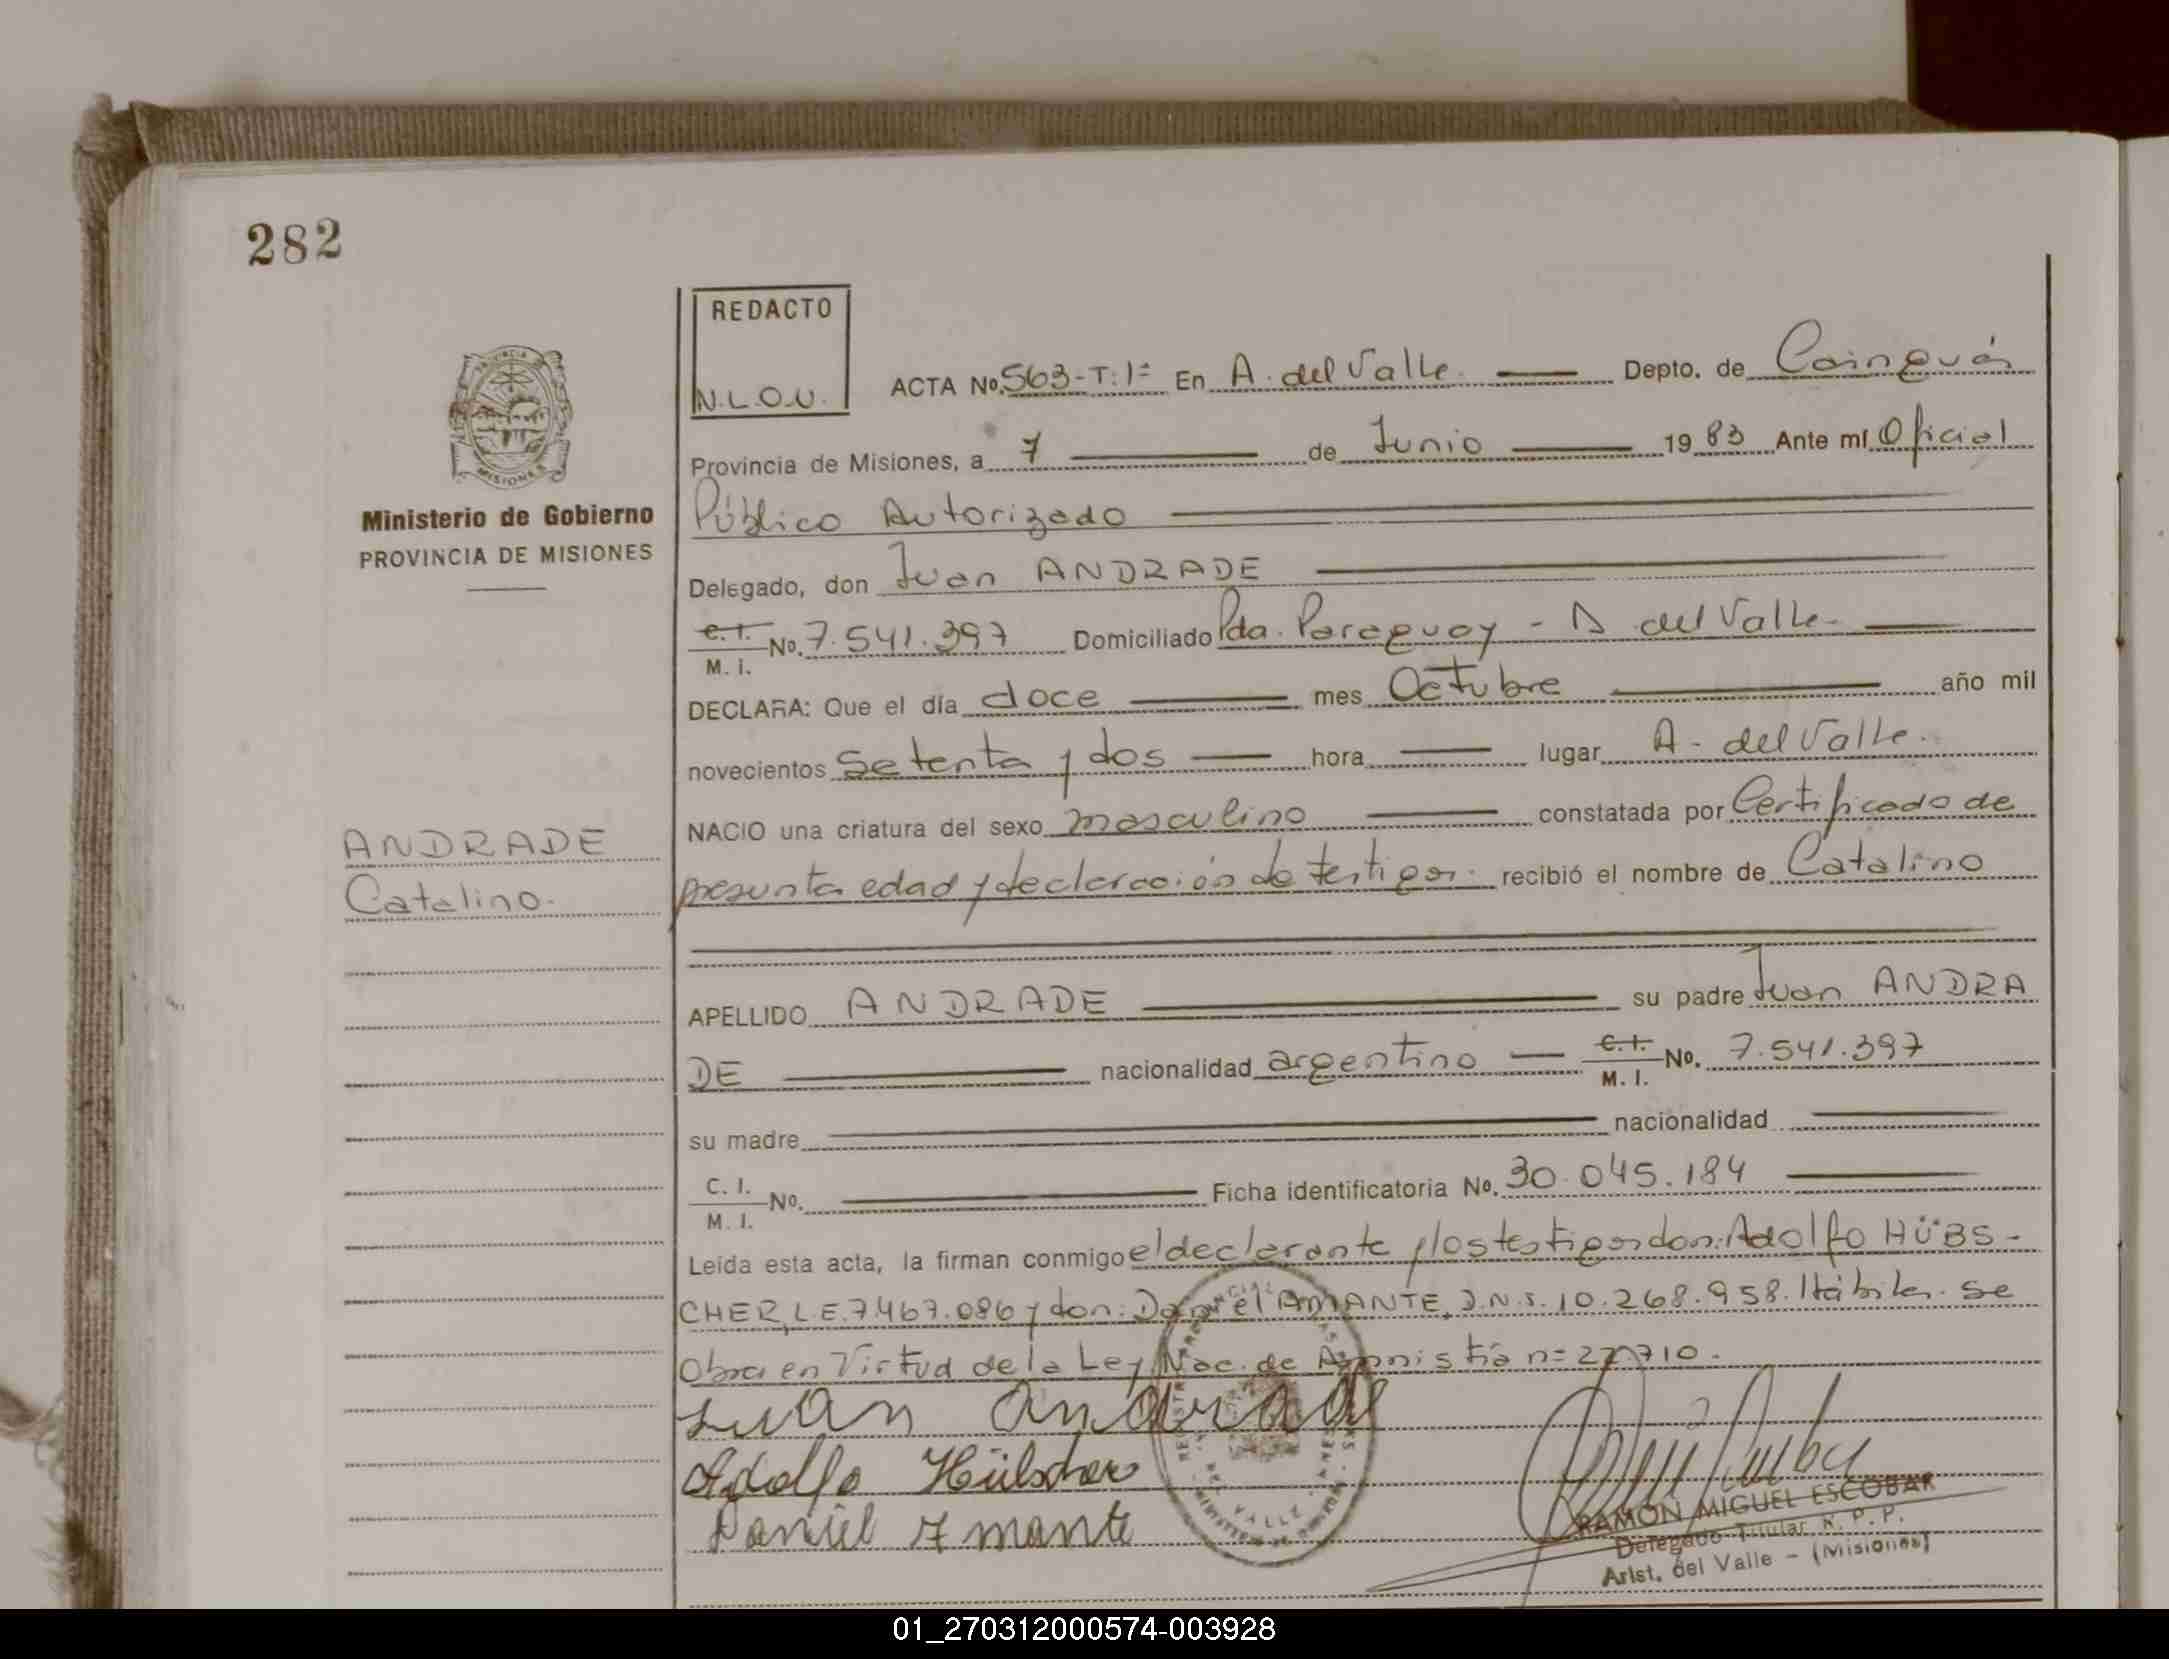 282
REDACTO
N.L.O.U.
ACTA No. 563-T:1º En A. del Valle. Depto. de Cainguás
Provincia de Misiones, a 7 de Junio 1983 Ante mí Oficial
Público Autorizado
Ministerio de Gobierno
PROVINCIA DE MISIONES
Delegado, don Juan ANDRADE
C. I. M. I. No. 7.541.397 Domiciliado Pda. Paraguay - A del Valle.
DECLARA: Que el día doce mes Octubre año mil
novecientos setenta y dos hora lugar A. del Valle.
NACIO una criatura del sexo masculino constatada por Certificado de
ANDRADE
Catalino.
presunta edad y declaración de testigos. recibió el nombre de Catalino
APELLIDO ANDRADE su padre Juan ANDRA
DE nacionalidad argentino C. I. M. I. No. 7.541.397
su madre nacionalidad
C. I. M. I. No. Ficha identificatoria No. 30.045.184
Leída esta acta, la firman conmigo el declarante y los testigos don: Adolfo HÜBS-
CHER, L.E. 7.467.086 y don: Daniel AMANTE, D.N.I. 10.268.958. Hábiles. se
Obra en Virtud de la Ley Nac. de Amnistía nº 22.710.
Juan Andrade
Adolfo Hübscher
Daniel Amante
RAMON MIGUEL ESCOBAR
Delegado Titular R. P. P.
Arist. del Valle - (Misiones)
01_270312000574-003928